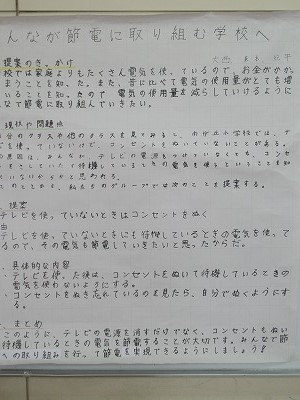 んなが節電に取り組む学校へ
提案のきっかけ
校では家庭よりもたくさん電気を使っているので、お金がかか
まうことを知った。また、昔に比べて電気の使用量がとても増
ていることを知ったので、電気の使用量を減らしていけるように
なで節電に取り組んでいきたい。
現状や問題点
自分のクラスや他のクラスを見てみると、
を使っていないけど、コンセントをぬいていないことがある。
原因は、みんなに テレビの電源を
待機しているときの電気を使うということを知
いないからだと思われる。
のことから、私たちのグループでは次のことを提案する。
提案
テレビを使っていないときはコンセントをぬく
由
テレビを使っていないときにも待機しているときの電気を使って
るので、その電気も節電していきたいと思ったからだ。
具体的な内容
・テレビを使った後は、コンセントをぬいて待機しているときの
電気を使わないようにする。
・コンセントをぬき忘れているのを見たら、自分でぬくようにす
る。
まとめ
このように、テレビの電源を消すだけでなく、コンセントもぬい
待機しているときの電気を節電することが大切です。みんなで節
への取り組みを行って節電を実現できるようにしましょう!